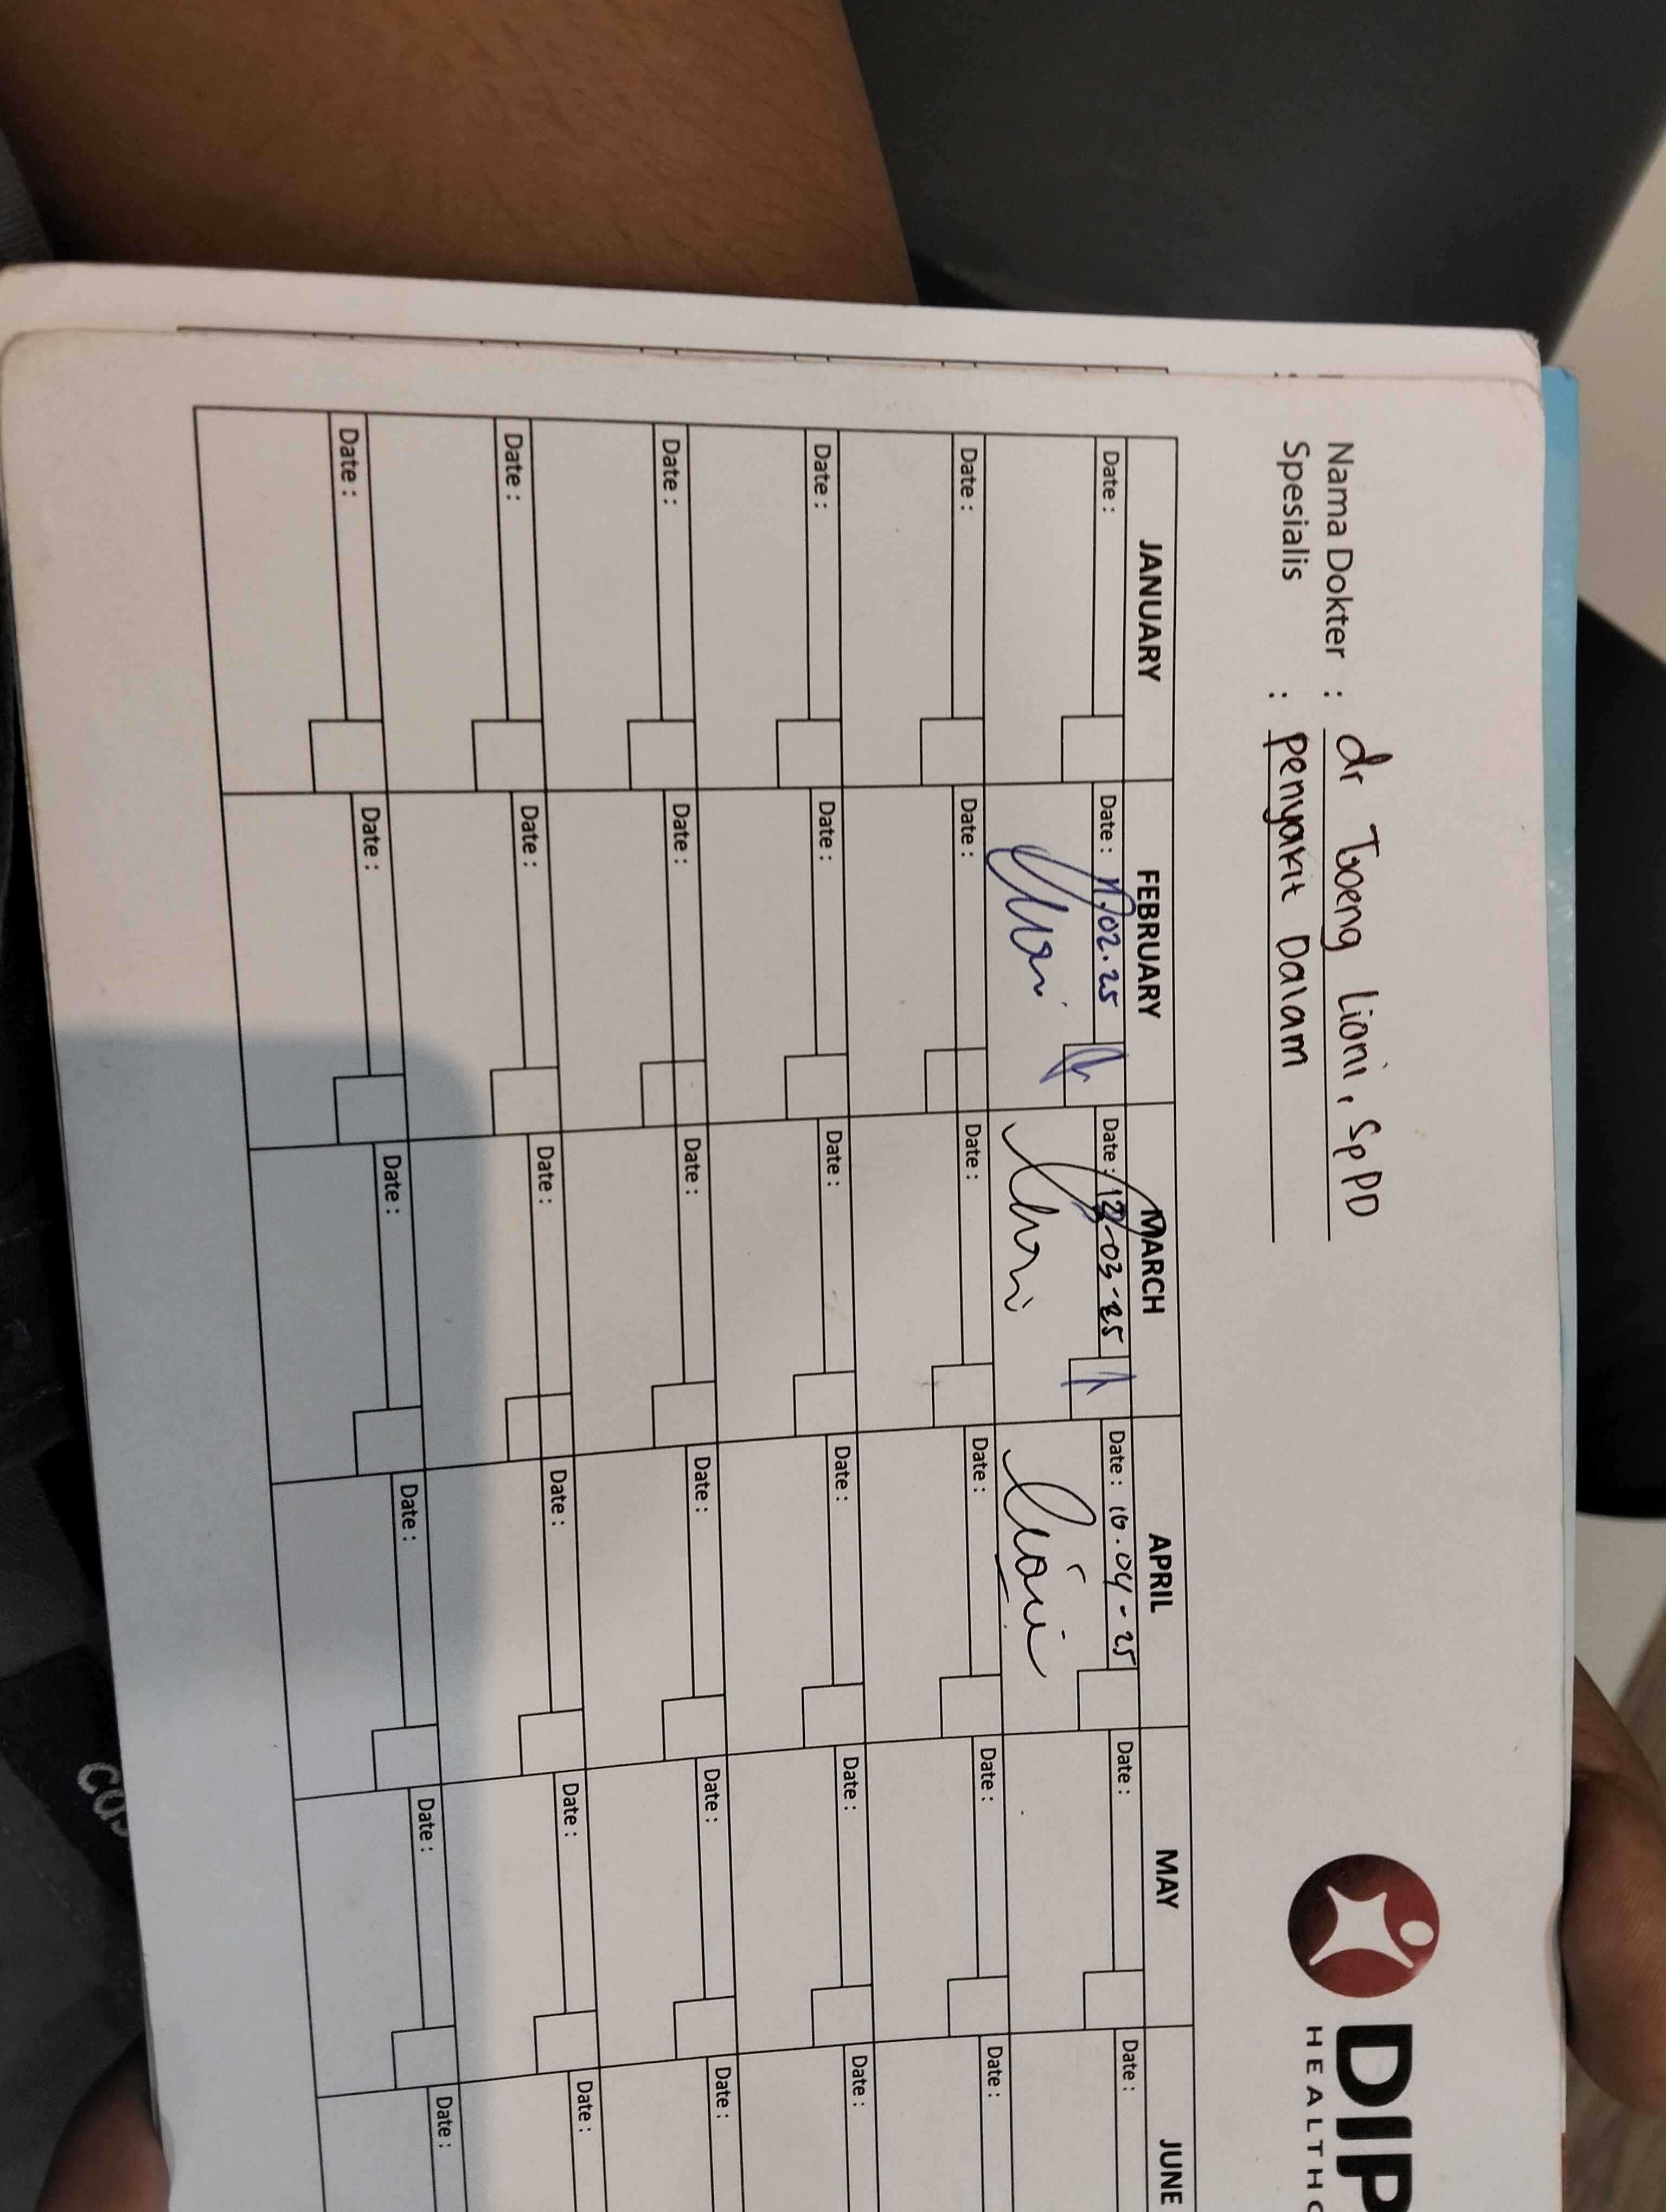 Nama Dokter : dr Tjoeng Lioni, SpPD
Spesialis : penyakit Dalam
DIP
HEALTHC
JANUARY FEBRUARY MARCH APRIL MAY JUNE
Date : Date : 11.02.25 Date : 12-03-25 Date : 16.04-25 Date : Date :
Lioni
Date : Date : Date : Date : Date : Date :
Date : Date : Date : Date : Date : Date :
Date : Date : Date : Date : Date : Date :
Date : Date : Date : Date : Date : Date :
Date : Date : Date : Date : Date : Date :
cas